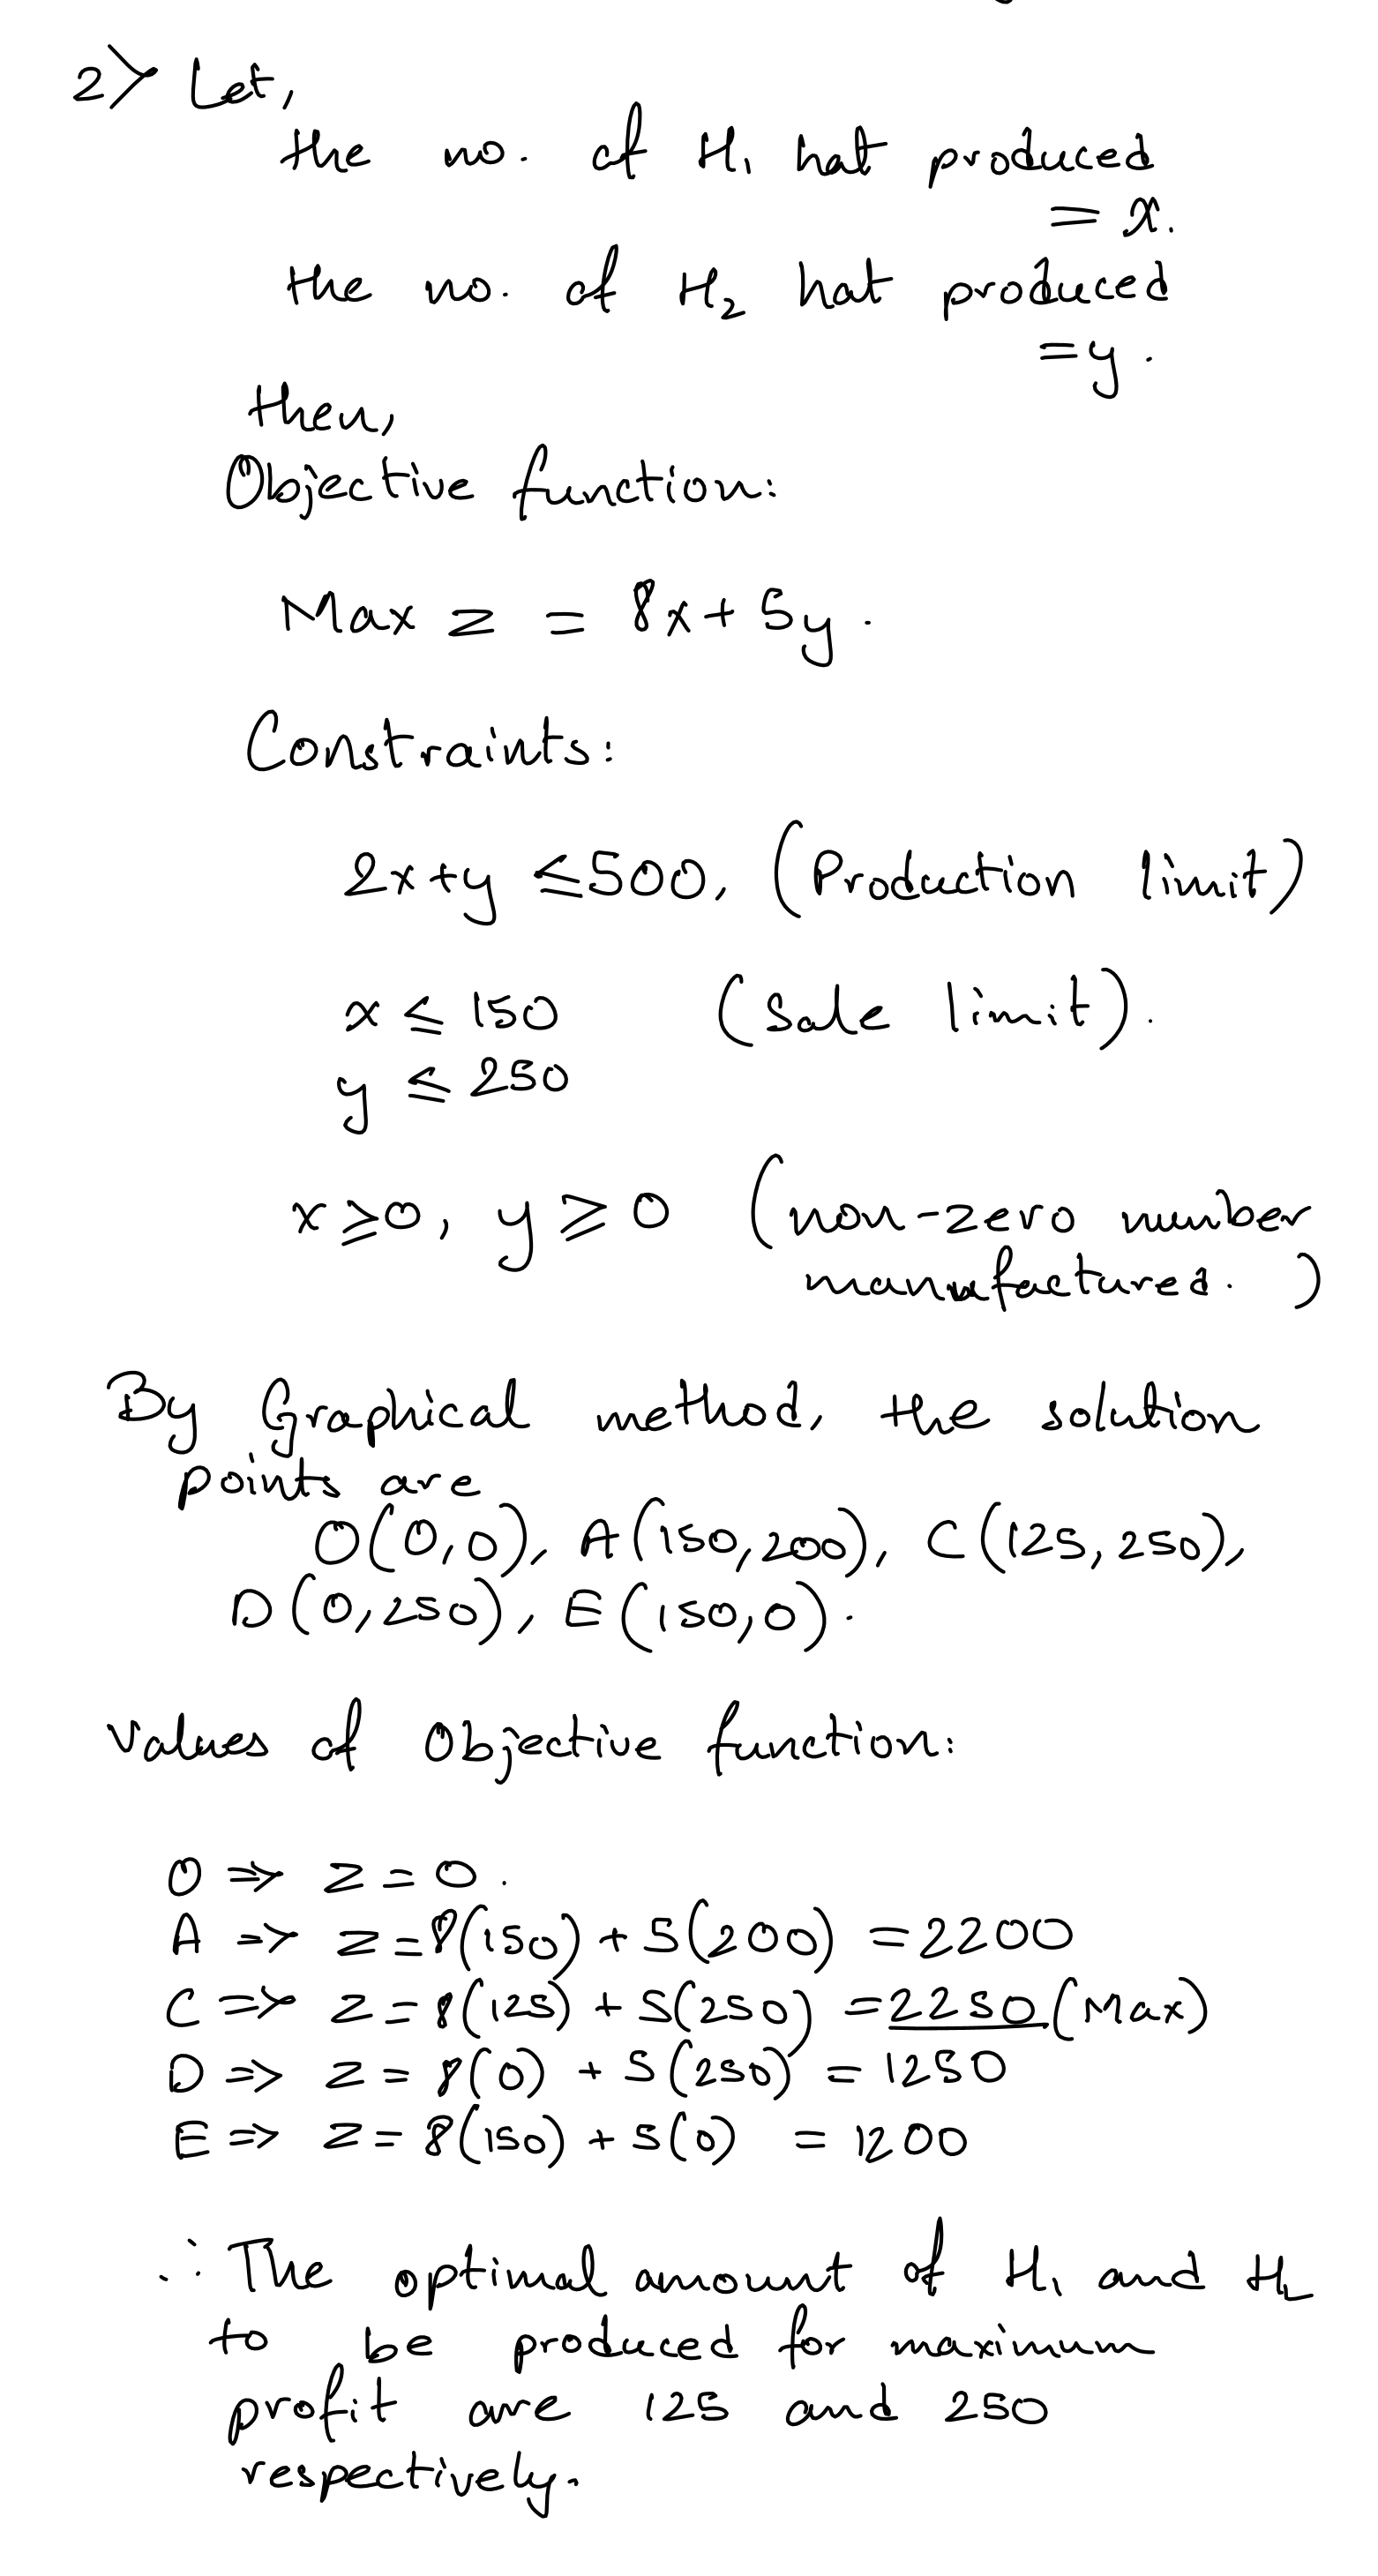 2> Let,
the no. of H₁ hat produced
= x.
the no. of H₂ hat produced
= y.
then,
Objective function:
Max z = 8x + 5y.
Constraints:
2x+y ≤ 500, (Production limit)
x ≤ 150 (Sale limit).
y ≤ 250
x ≥ 0, y ≥ 0 (non-zero number
manufactured.)
By Graphical method, the solution
points are
O(0,0), A(150,200), C(125,250),
D(0,250), E(150,0).
Values of Objective function:
O ⇒ z = 0.
A ⇒ z = 8(150) + 5(200) = 2200
C ⇒ z = 8(125) + 5(250) = 2250 (Max)
D ⇒ z = 8(0) + 5(250) = 1250
E ⇒ z = 8(150) + 5(0) = 1200
∴ The optimal amount of H₁ and H₂
to be produced for maximum
profit are 125 and 250
respectively.